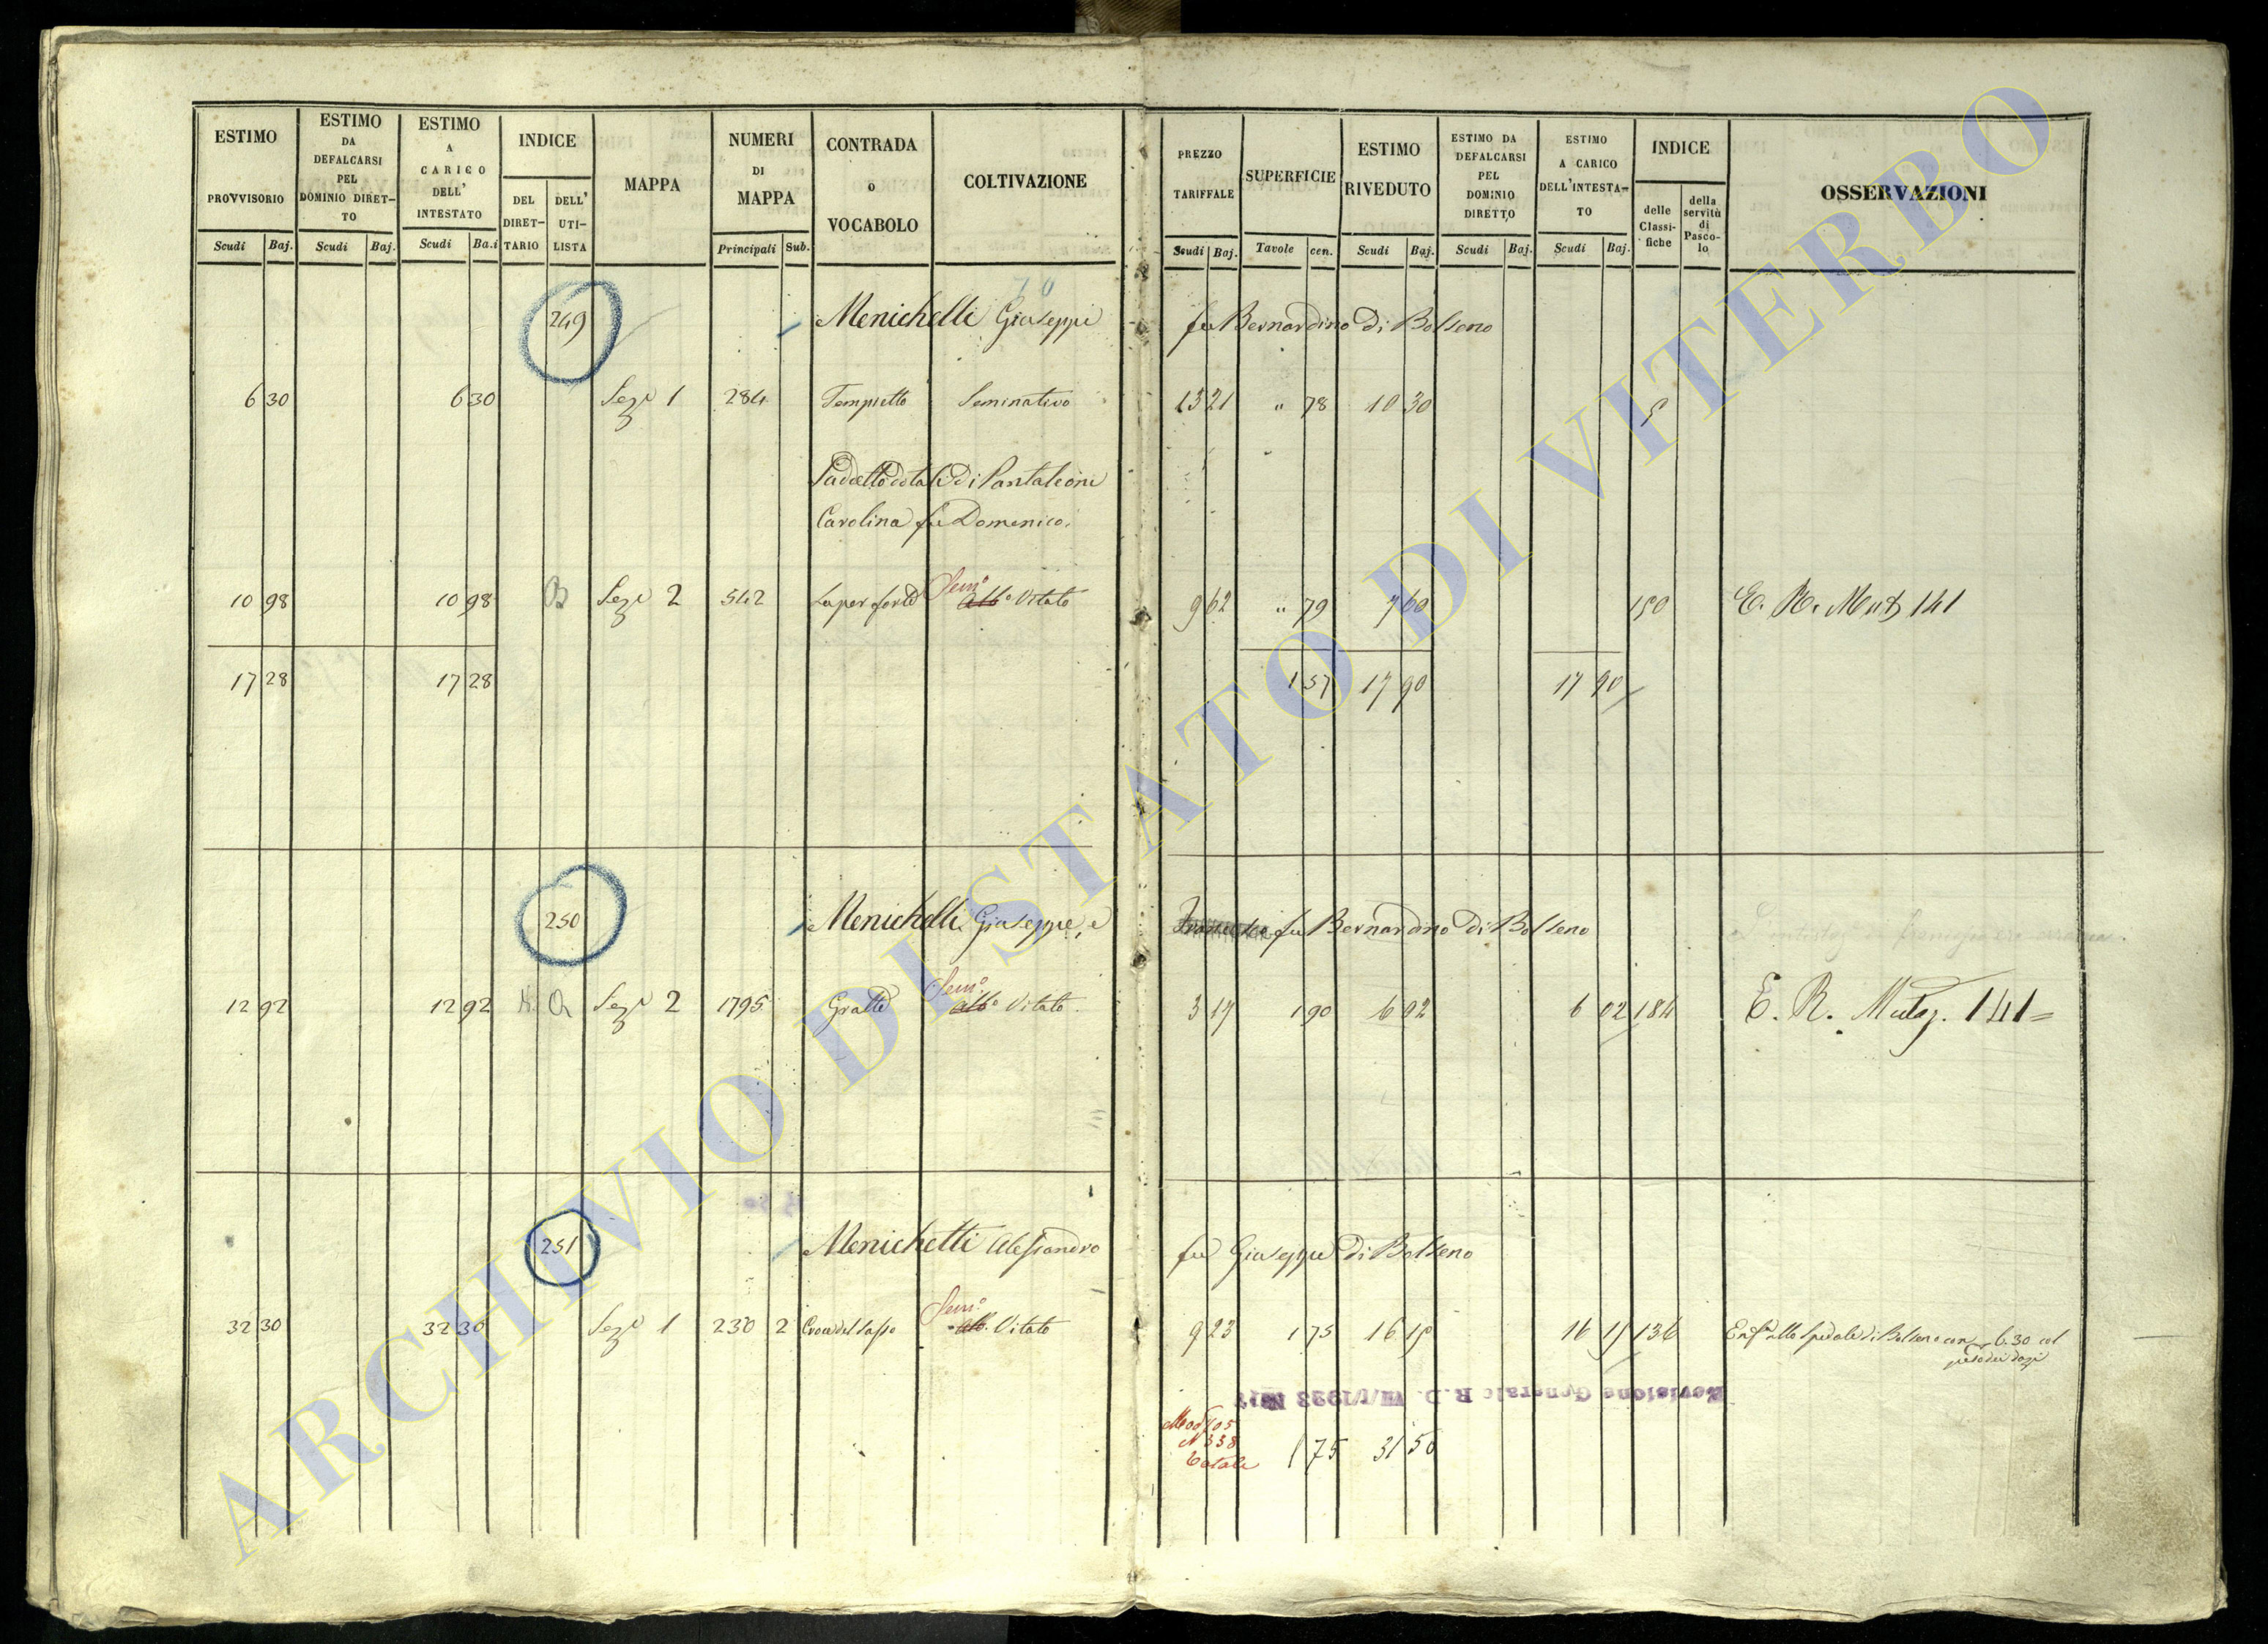 ESTIMO PROVVISORIO Scudi Baj.
ESTIMO DA DEFALCARSI PEL DOMINIO DIRET-TO Scudi Baj.
ESTIMO A CARICO DELL' INTESTATO Scudi Ba.i
INDICE DEL DIRET-TARIO DELL' UTI-LISTA
MAPPA
NUMERI DI MAPPA Principali Sub.
CONTRADA O VOCABOLO
COLTIVAZIONE
PREZZO TARIFFALE Scudi Baj.
SUPERFICIE Tavole cen.
ESTIMO RIVEDUTO Scudi Baj.
ESTIMO DA DEFALCARSI PEL DOMINIO DIRETTO Scudi Baj.
ESTIMO A CARICO DELL'INTESTA-TO Scudi Baj.
INDICE delle Classi-fiche della servitù di Pasco-lo
OSSERVAZIONI
70
249 Menichelli Giuseppe fu Bernardino di Bolseno
6 30 6 30 Sez.e 1 284 Tempietto Seminativo 13 21 " 78 10 30 5
Suddetto dotali di Pantaleoni
Carolina fu Domenico.
Sem.o
10 98 10 98 B Sez.e 2 542 Alb.o Vitato 9 62 " 79 7 60 150 E. R. 141
17 28 17 28 1 57 17 90 17 90
250 Menichelli Giuseppe, e Francesco fu Bernardino di Bolseno
Sem.o
12 92 12 92 A Sez.e 2 1795 Gratte Alb.o Vitato 3 17 1 90 6 02 6 02 184 E. R. Mutaz. 141
251 Menichetti Alessandro fu Giuseppe di Bolseno
Sem.o
32 30 32 30 Sez.e 1 230 2 Croce del Sasso Alb. Vitato 9 23 1 75 16 15 16 15 136 Enf.a allo Spedale di Bolseno con 6.30 col
peso dei dazi
Revisione Generale R. D. 7/1/1923 N. 17
Mod. 105
N 338
Totale 1 75 31 50
ARCHIVIO DI STATO DI VITERBO